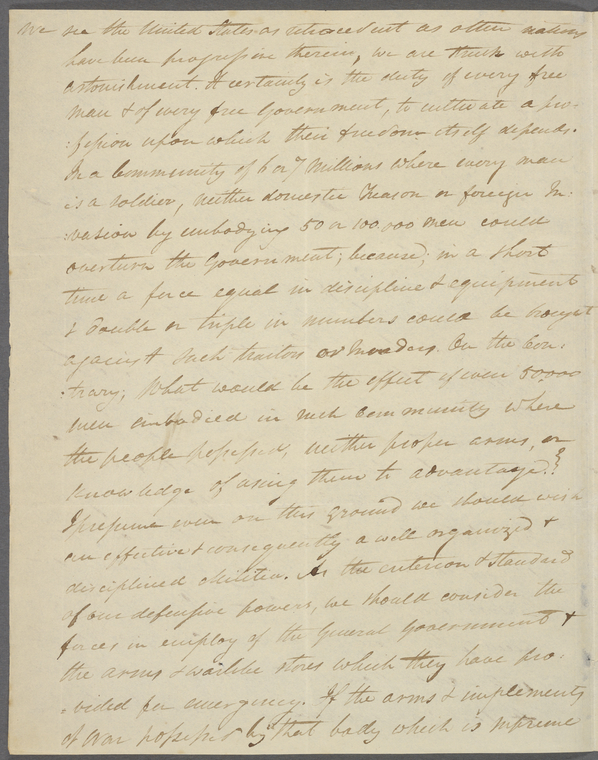 We see the United States as retrocedent as other nations
have been progressive therein, we are struck with
astonishment. It certainly is the duty of every free
man & of every free Government, to cultivate a pro-
:fession upon which their freedom itself depends.
In a Community of 6 or 7 Millions where every man
is a soldier, neither domestic Treason or foreign In-
:vasion by embodying 50 or 100,000 men could
overturn the Government; because, in a short
time a force equal in discipline & equipment
& double or triple in numbers could be brought
against such traitors or Invaders. On the Con-
:trary; What would be the effect of even 50,000
men embodied in such Community where
the people possessed, neither proper arms, or
knowledge of using them to advantage??
I presume even on this ground we should wish
an effective & consequently a well organized &
disciplined Militia. As the criterion & standard
of our defensive powers, we should consider the
forces in employ of the General Government &
the arms & warlike stores which they have pro-
:vided for emergency. If the arms & implements
of war possessed by that body which is supreme